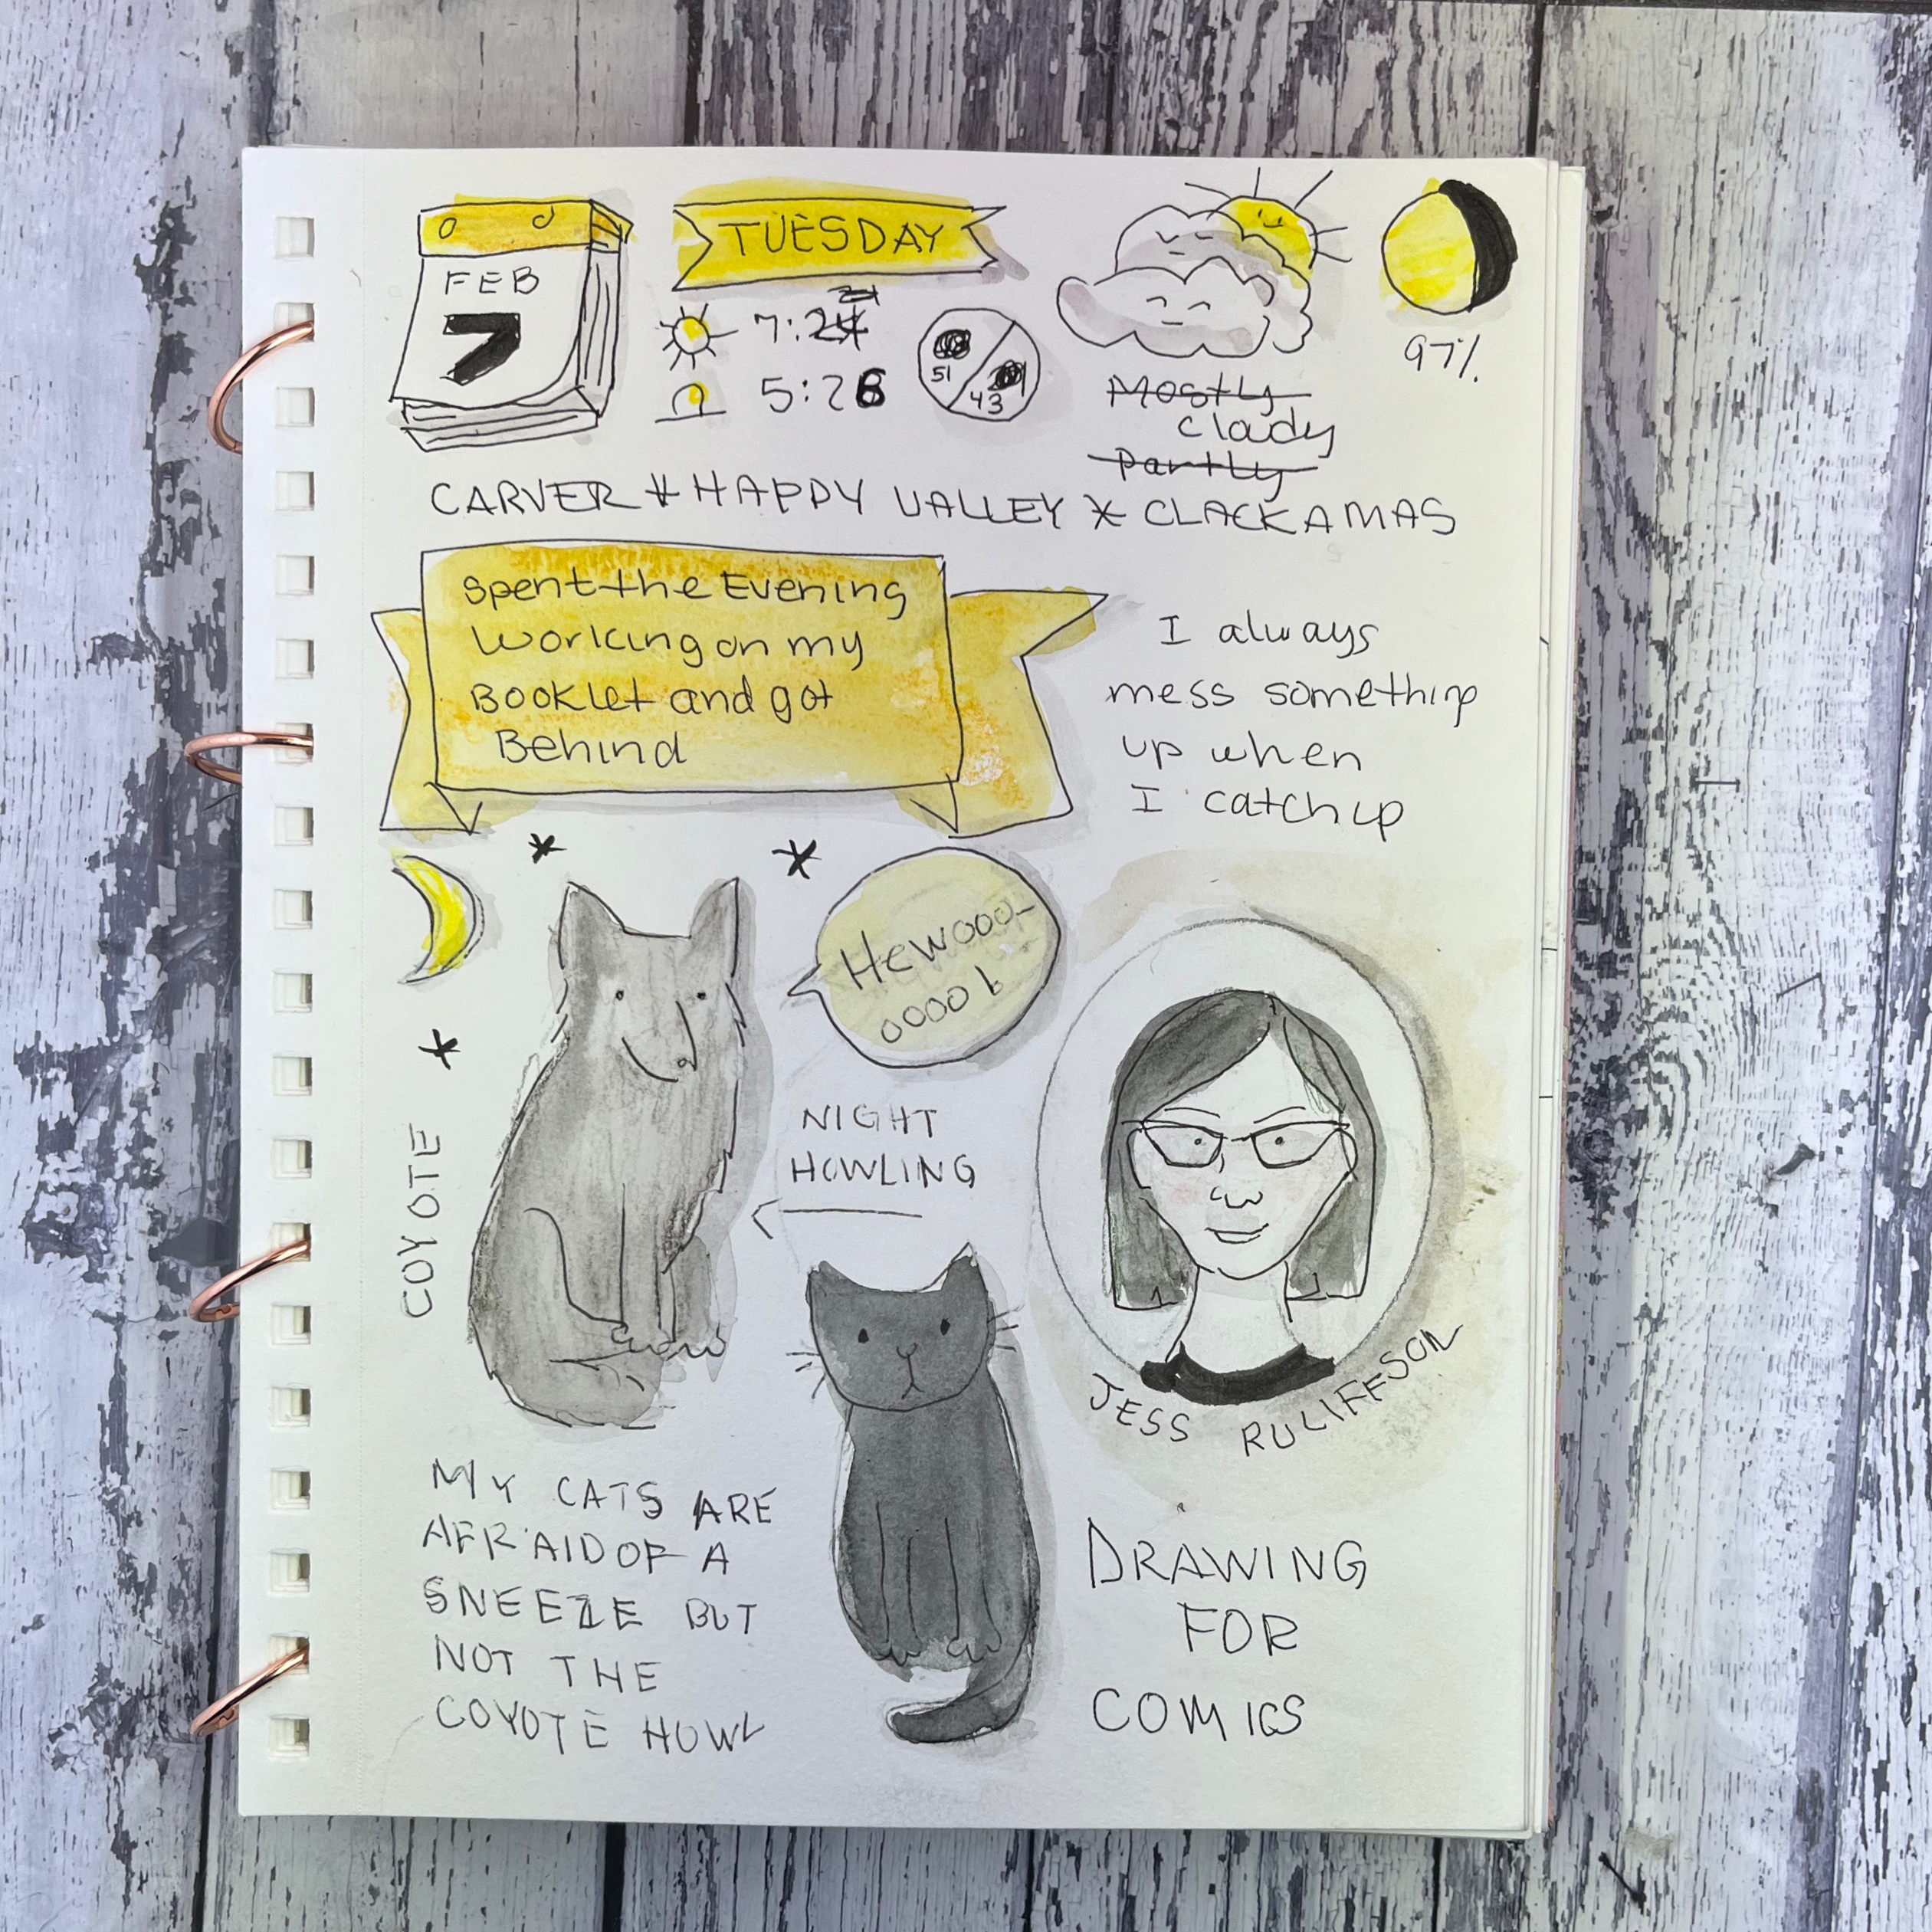 FEB
7
TUESDAY
5:26
51
43
Mostly
cloudy
Partly
97%
CARVER * HAPPY VALLEY * CLACKAMAS
Spent the Evening
working on my
Booklet and got
Behind
I always
mess something
up when
I catch up
Hewooo-
oooo!
COYOTE
NIGHT
HOWLING
JESS RULIFFSON
MY CATS ARE
AFRAID OF A
SNEEZE BUT
NOT THE
COYOTE HOWL
DRAWING
FOR
COMICS